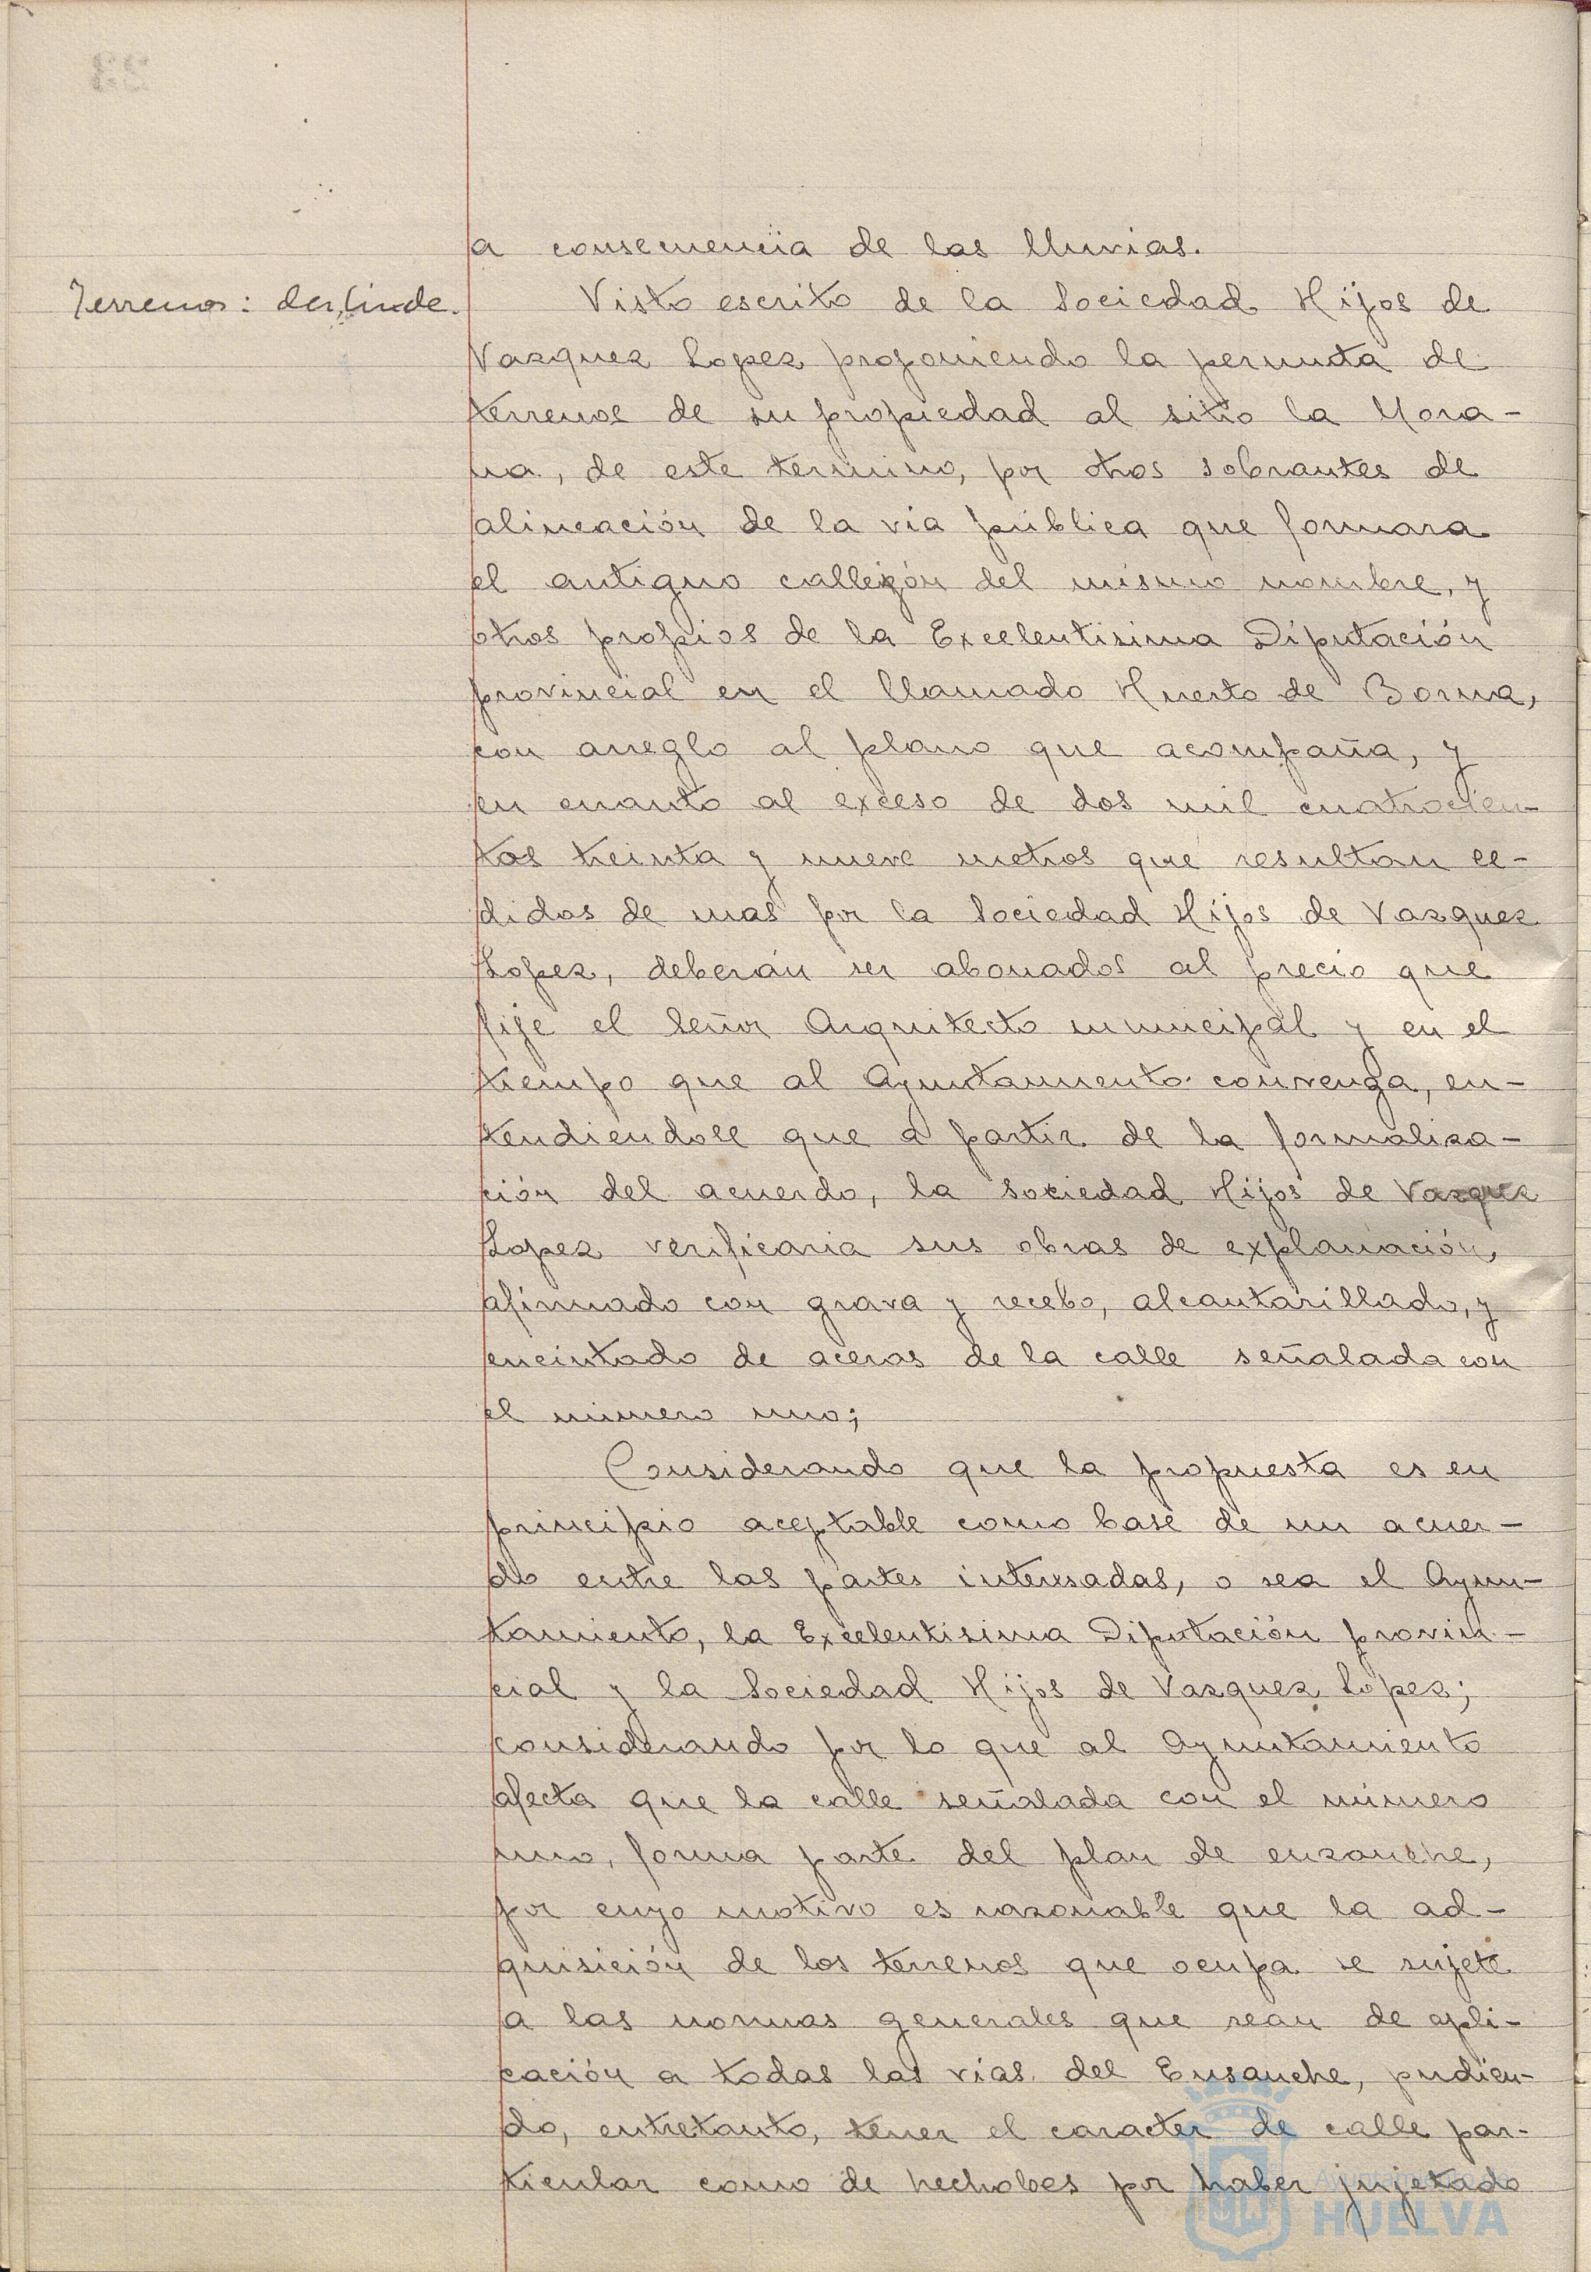 a consecuencia de las lluvias.
Terrenos: deslinde.
Visto escrito de la Sociedad Hijos de
Vazquez Lopez proponiendo la permuta de
terrenos de su propiedad al sitio la Mora-
na, de este termino, por otros sobrantes de
alineación de la via pública que formara
el antiguo callejón del mismo nombre, y
otros propios de la Excelentisima Diputación
provincial en el llamado Huerto de Borna,
con arreglo al plano que acompaña, y
en cuanto al exceso de dos mil cuatrocien-
tos treinta y nueve metros que resultan ce-
didos de mas por la Sociedad Hijos de Vazquez
Lopez, deberán ser abonados al precio que
fije el Señor Arquitecto municipal y en el
tiempo que al Ayuntamiento convenga, en-
tendiendose que a partir de la formaliza-
ción del acuerdo, la sociedad Hijos de Vazquez
Lopez verificaria sus obras de explanación,
afirmado con grava y recebo, alcantarillado, y
encintado de aceras de la calle señalada con
el número uno;
Considerando que la propuesta es en
principio aceptable como base de un acuer-
do entre las partes interesadas, o sea el Ayun-
tamiento, la Excelentisima Diputación provin-
cial y la Sociedad Hijos de Vazquez Lopez;
considerando por lo que al Ayuntamiento
afecta que la calle señalada con el número
uno, forma parte del plan de ensanche,
por cuyo motivo es razonable que la ad-
quisición de los terrenos que ocupa se sujete
a las normas generales que sean de apli-
cación a todas las vias del Ensanche, pudien-
do, entretanto, tener el caracter de calle par-
ticular como de hecho es por haber sujetado
Ayuntamiento de
HUELVA